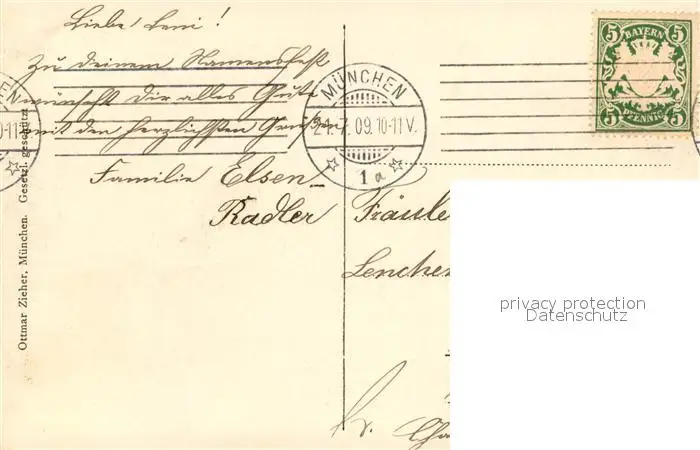 Liebe Leni!
Zu deinem Namensfest
wünscht Dir alles Gute
mit den herzlichsten Grüßen
Familie Elsen-
Radler
Fräule
Lenchen
MÜNCHEN
21.7.09.10-11V.
1a
5 5
BAYERN
PFENNIG
5 5
Ottmar Zieher, München. Gesetzl. geschützt
privacy protection
Datenschutz